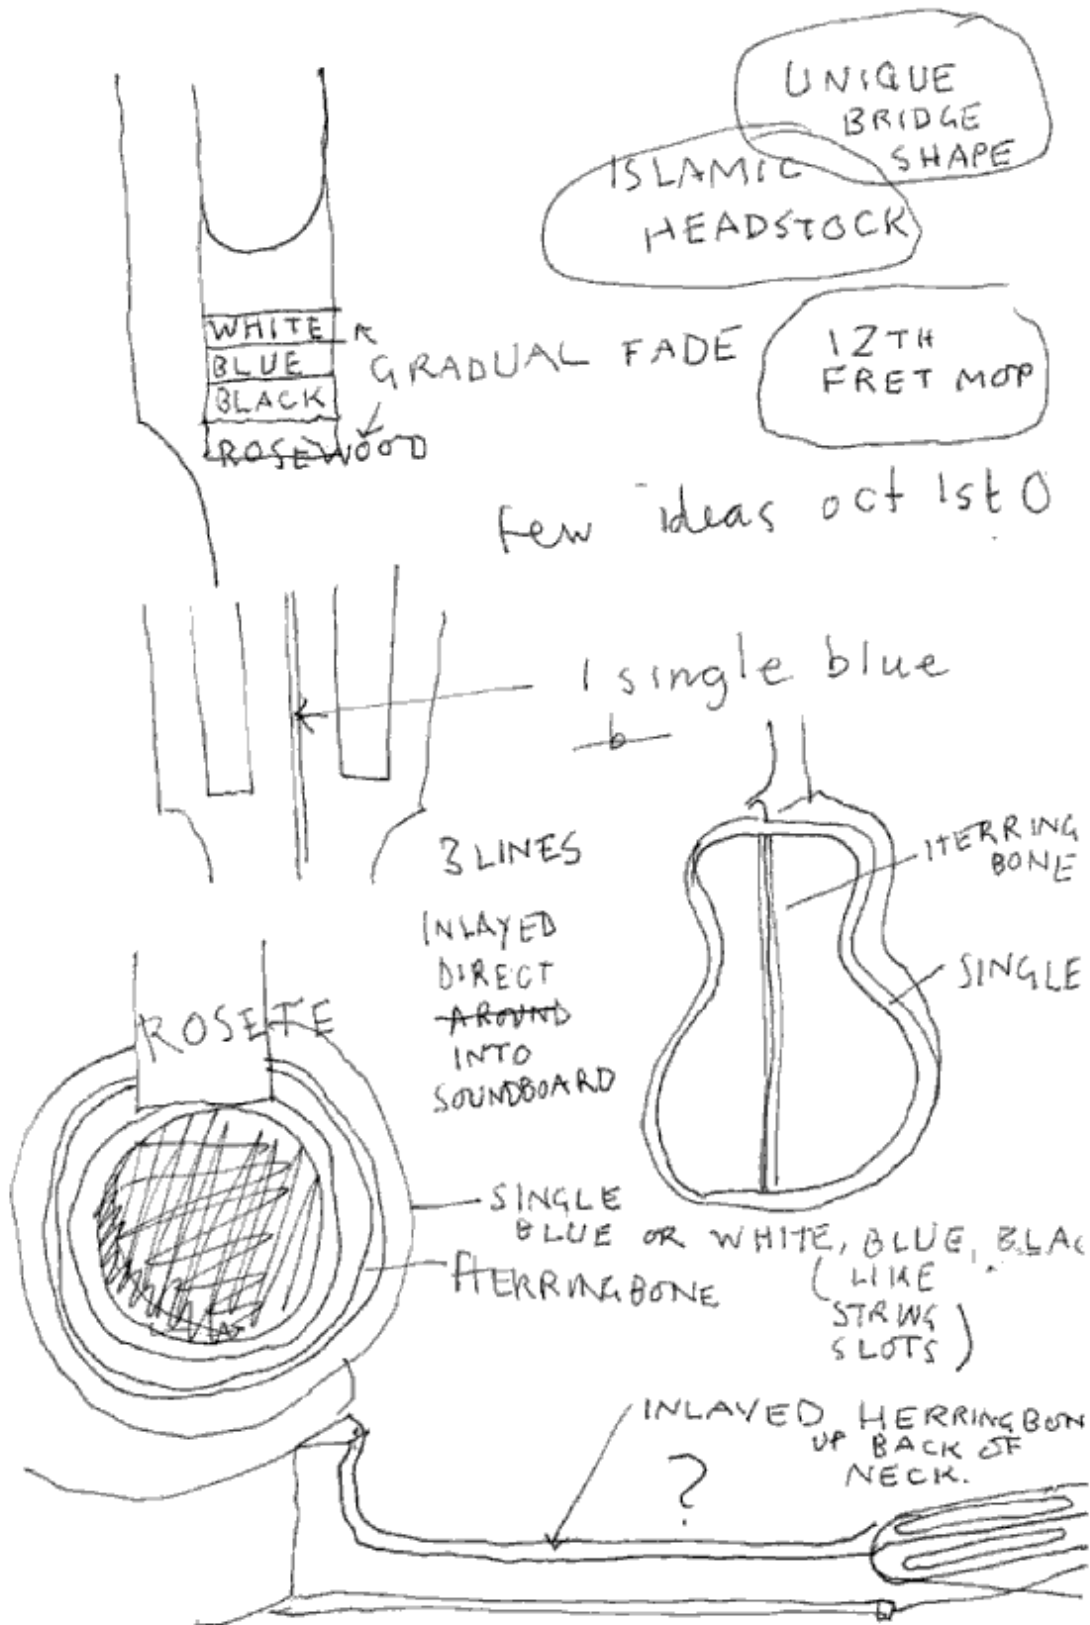 UNIQUE
BRIDGE
SHAPE
ISLAMIC
HEADSTOCK
WHITE
BLUE
BLACK
ROSEWOOD
GRADUAL FADE
12TH
FRET MOP
Few ideas oct 1st 0
1 single blue
b
3 LINES
INLAYED
DIRECT
AROUND
INTO
SOUNDBOARD
HERRING
BONE
SINGLE
ROSETE
SINGLE
BLUE OR WHITE, BLUE, BLAC
(LIKE
STRING
SLOTS)
HERRINGBONE
INLAYED HERRINGBON
UP BACK OF
NECK.
?